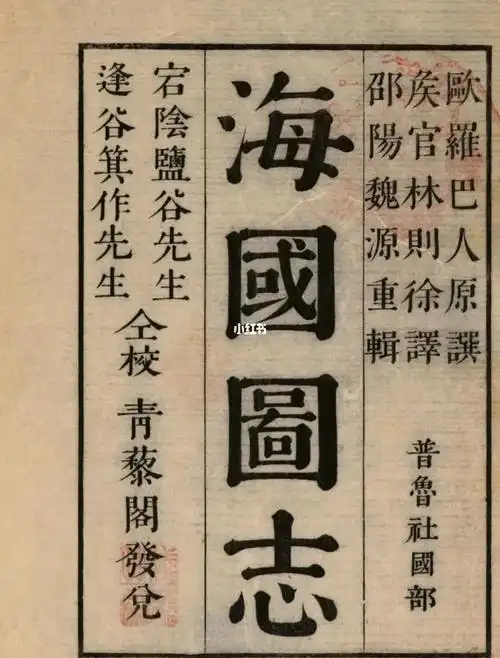 歐羅巴人原譔
矦官林則徐譯
邵陽魏源重輯
普魯社國部
海國圖志
宕陰鹽谷先生
逢谷箕作先生
仝校
青藜閣發兌
小红书